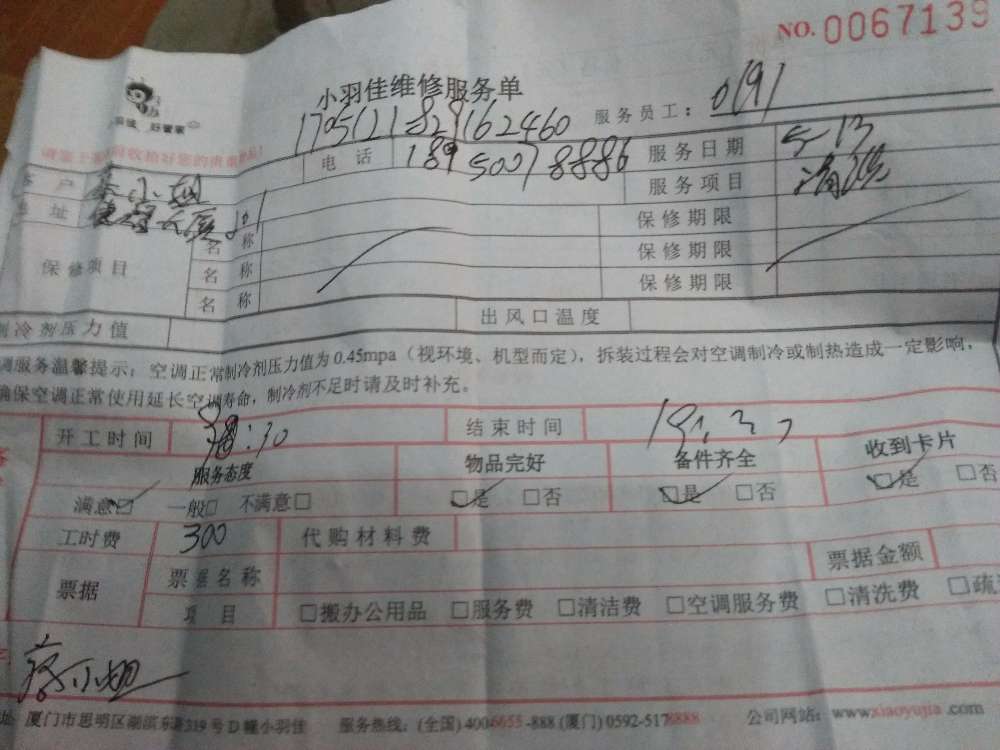 NO. 0067139
小羽佳维修服务单
好管家
服务员工: 0191
1705121829162460
客户 蔡小姐 电话 18950078886 服务日期 5-13
地址 服务项目 清洗
保修项目 名称 保修期限
名称 保修期限
名称 保修期限
制冷剂压力值 出风口温度
调服务温馨提示: 空调正常制冷剂压力值为0.45mpa（视环境、机型而定），拆装过程会对空调制冷或制热造成一定影响，
确保空调正常使用延长空调寿命，制冷剂不足时请及时补充。
开工时间 :30 结束时间
服务态度 物品完好 备件齐全 收到卡片
满意☑ 一般□ 不满意□ ☑是 □否 ☑是 □否 ☑是 □否
工时费 300 代购材料费
票据 票据名称 票据金额
项目 □搬办公用品 □服务费 □清洁费 □空调服务费 □清洗费 □疏
蔡小姐
址 厦门市思明区湖滨东路319号D幢小羽佳 服务热线: (全国) 4006055-888 (厦门) 0592-5178888 公司网站: www.xiaoyujia.com